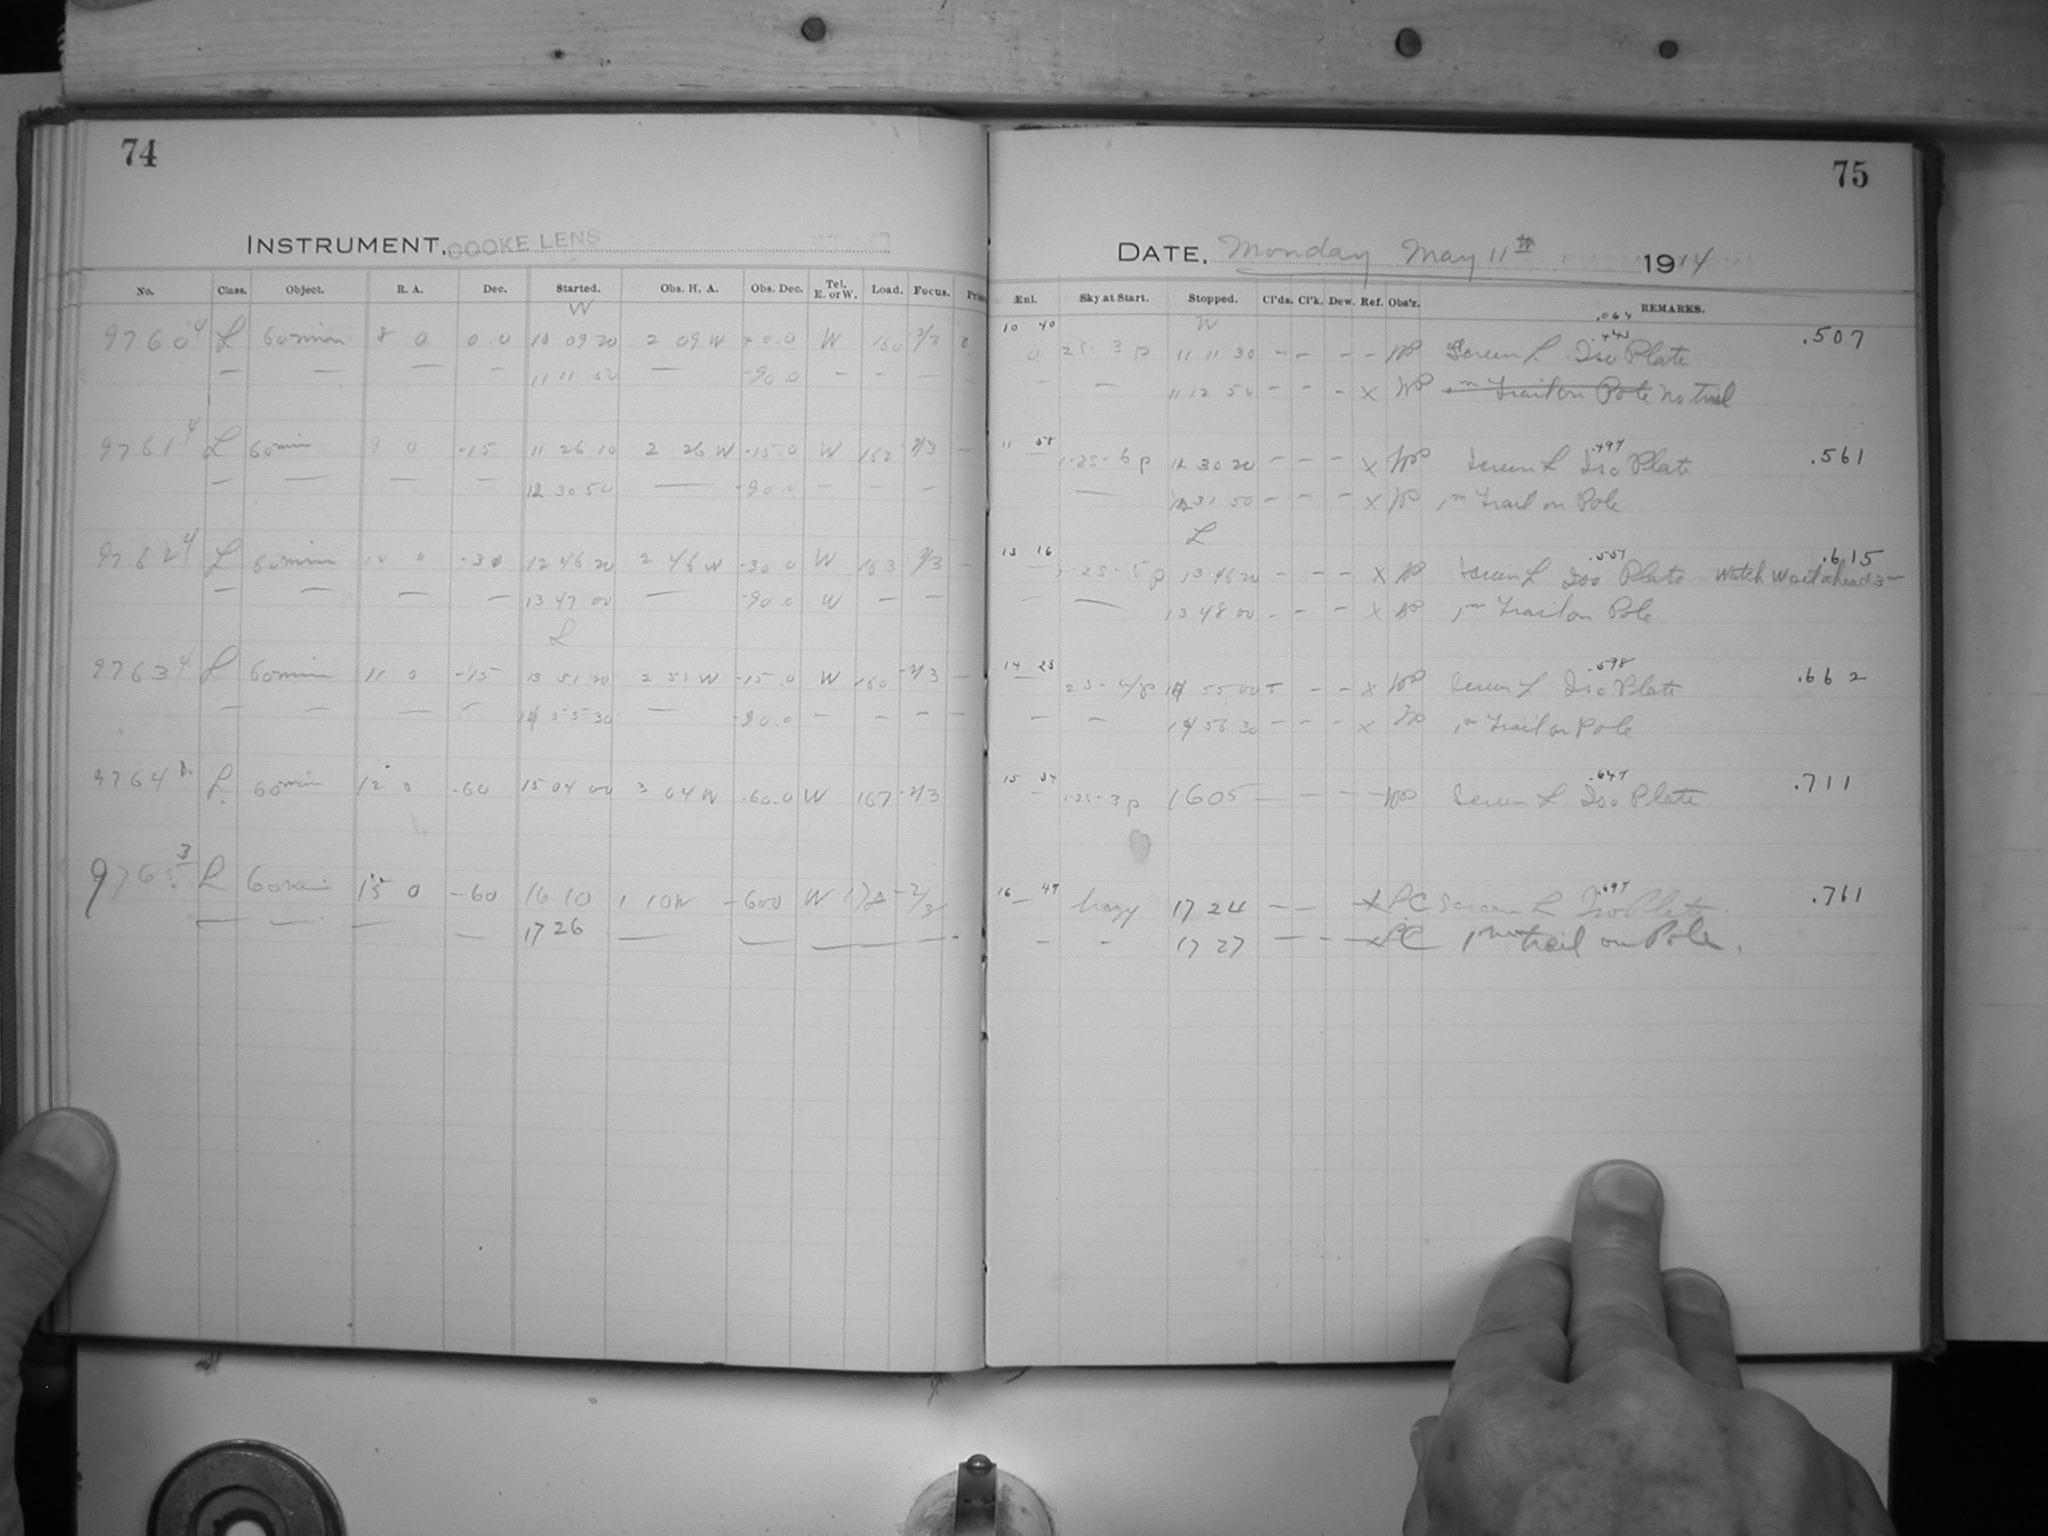 74
INSTRUMENT, COOKE LENS
No. Class. Object. R. A. Dec. Started. Obs. H. A. Obs. Dec. Tel. E. or W. Load. Focus.
W
9760 4 L 60 min 8 0 0 0 10 09 20 2 09 W 0.0 W 160 2/3
— — — — 11 11 50 — -90.0 - - -
9761 4 L 60 min 9 0 -15 11 26 10 2 26 W -15.0 W 162 -2/3 —
— — — — 12 30 50 — -90.0 — - —
9762 4 L 60 min 10 0 -30 12 46 20 2 46 W -30 0 W 163 -2/3 —
— — — — 13 47 00 — -90.0 W — —
L
9763 4 L 60 min 11 0 -15 13 51 20 2 51 W -15.0 W 160 -2/3 —
— — — — 14 55 30 — -90.0 — - - —
9764 L 60 min 12 0 -60 15 04 00 3 04 W -60.0 W 167 -2/3
9765 3 L 60 min 15 0 -60 16 10 1 10 W -600 W -2/3
— — — — 17 26 — — —
75
DATE, Monday May 11th 1914
Enl. Sky at Start. Stopped. Cl'ds. Cl'k. Dew. Ref. Obs'r. REMARKS.
W .064
10 40 25-3 p 11 11 30 - - - - Screen L .443 Iso Plate .507
— — 11 12 50 - - - X 1m Trail on Pole No trail
11 58 1-25-6 p 12 30 20 - - - X Screen L .497 Iso Plate .561
— 12 31 50 - - - X 1m Trail on Pole
L
13 16 25-5 p 13 46 20 - - - X Screen L .551 Iso Plate Watch W set ahead 3m .615
— — 13 48 00 - - - X 1m Trail on Pole
14 23 25-4 p 14 55 00 - - - X Screen L .598 Iso Plate .662
— — 14 56 30 - - - X 1m Trail on Pole
15 34 1-25-3 p 1605 — — — — Screen L .647 Iso Plate .711
16 47 hazy 17 24 - - - X PC Screen L .697 Iso Plate .761
- - 17 27 - - - X PC 1m trail on Pole.